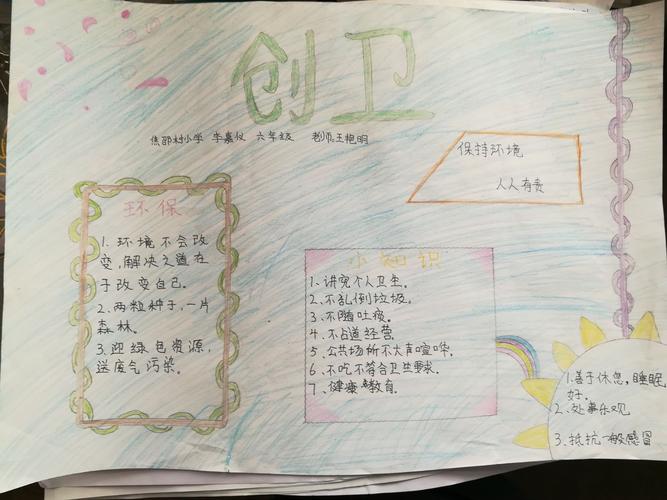 创卫
焦邵村小学 李嘉仪 六年级 老师:王艳明
保持环境
人人有责
环保
1. 环境不会改
变,解决之道在
于改变自己。
2. 两粒种子,一片
森林。
3. 迎绿色资源,
送废气污染。
小知识
1、讲究个人卫生。
2、不乱倒垃圾。
3、不随吐痰。
4、不占道经营。
5、公共场所不大声喧哗。
6、不吃不符合卫生要求。
7、健康教育。
1. 善于休息,睡眠
好.
2、处事乐观
3、抵抗一般感冒